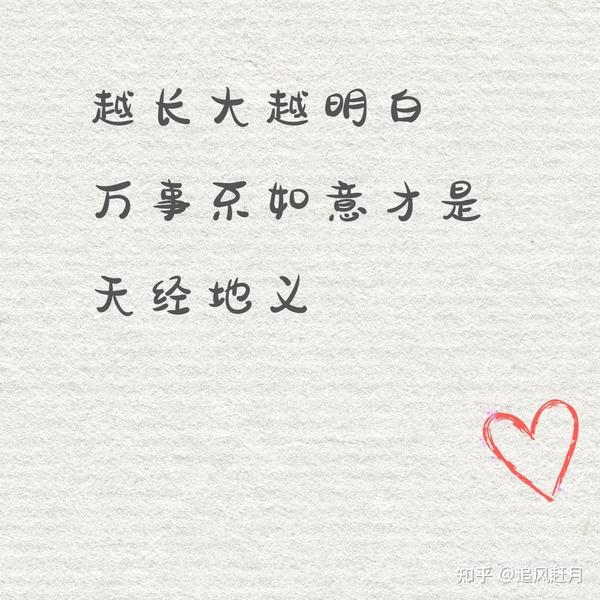 越长大越明白
万事系如意才是
天经地义
知乎 @追风赶月